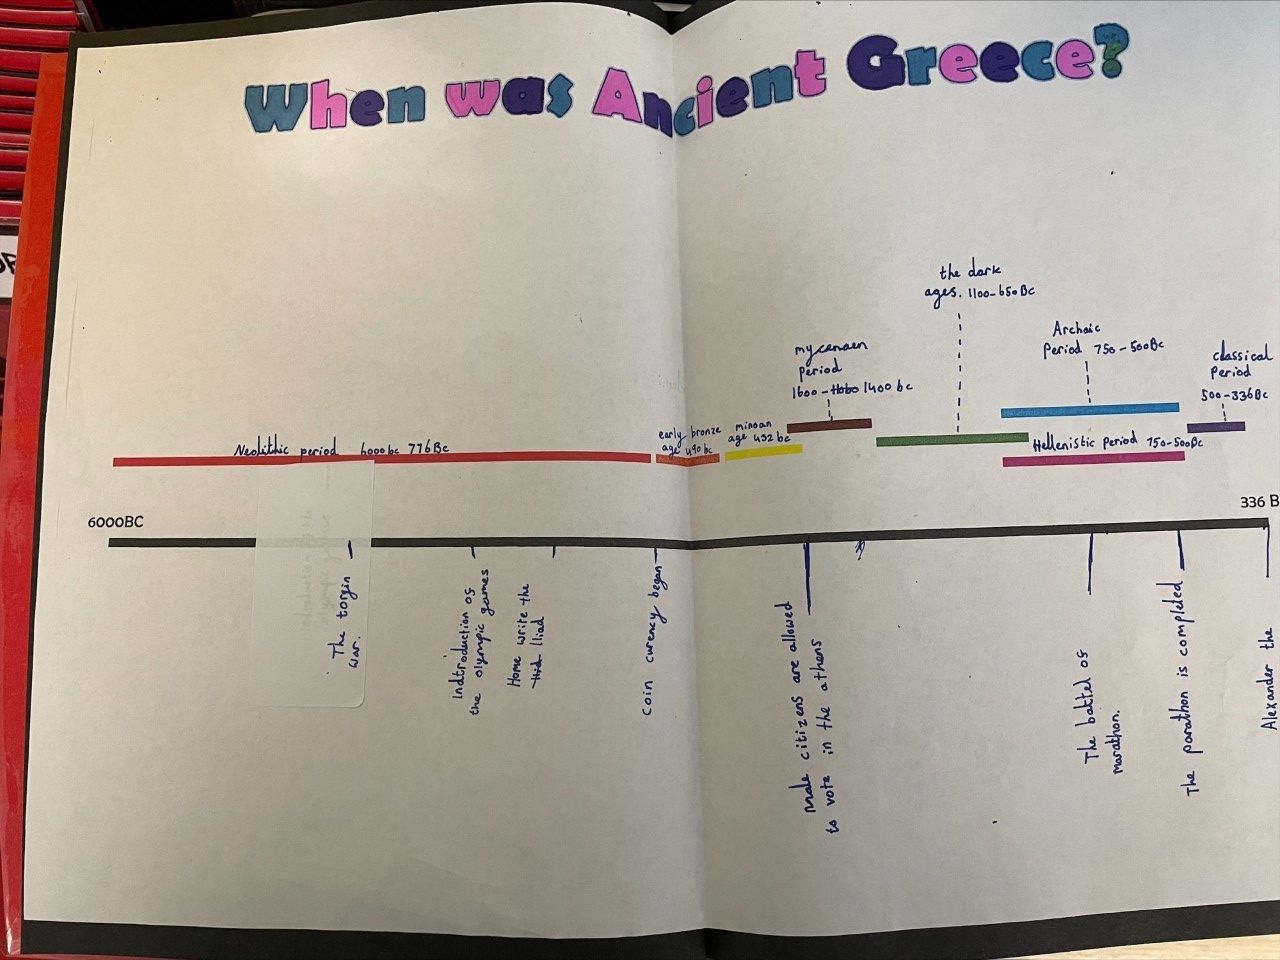 When was Ancient Greece?
the dark
ages. 1100-650Bc
mycenaen
period
1600- 1400 bc
Archaic
Period 750-500Bc
classical
Period
500-336Bc
Neolithic period 6000bc 776Bc
early bronze
age 490bc
minoan
age 432 bc
Hellenistic period 750-500Bc
6000BC
336 B
The torgin
war.
Indtroduction of
the olympic games
Home write the
Iliad
coin curency began
male citizens are allowed
to vote in the athens
The battel of
marathon.
The parathon is completed
Alexander the